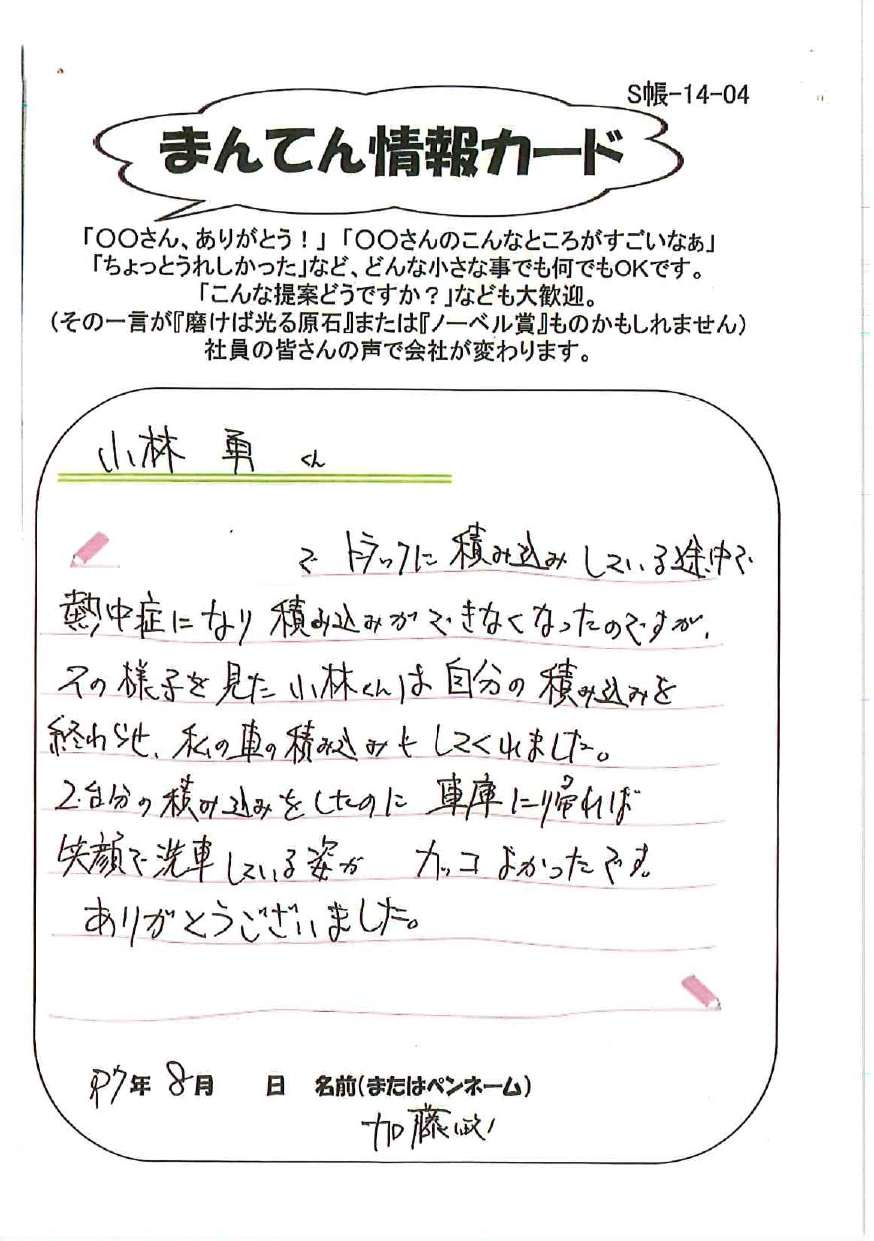 S帳-14-04
まんてん情報カード
「〇〇さん、ありがとう！」「〇〇さんのこんなところがすごいなぁ」
「ちょっとうれしかった」など、どんな小さな事でも何でもOKです。
「こんな提案どうですか？」なども大歓迎。
(その一言が『磨けば光る原石』または『ノーベル賞』ものかもしれません)
社員の皆さんの声で会社が変わります。
小林 勇 くん
で トラックに 積み込み している途中で
熱中症になり 積み込みができなくなったのですが、
その様子を見た小林くんは自分の積み込みを
終わらせ、私の車の積み込みもしてくれました。
2台分の積み込みをしたのに 車庫に帰れば
笑顔で洗車している姿が カッコよかったです。
ありがとうございました。
R7年 8月 日 名前(またはペンネーム)
加藤